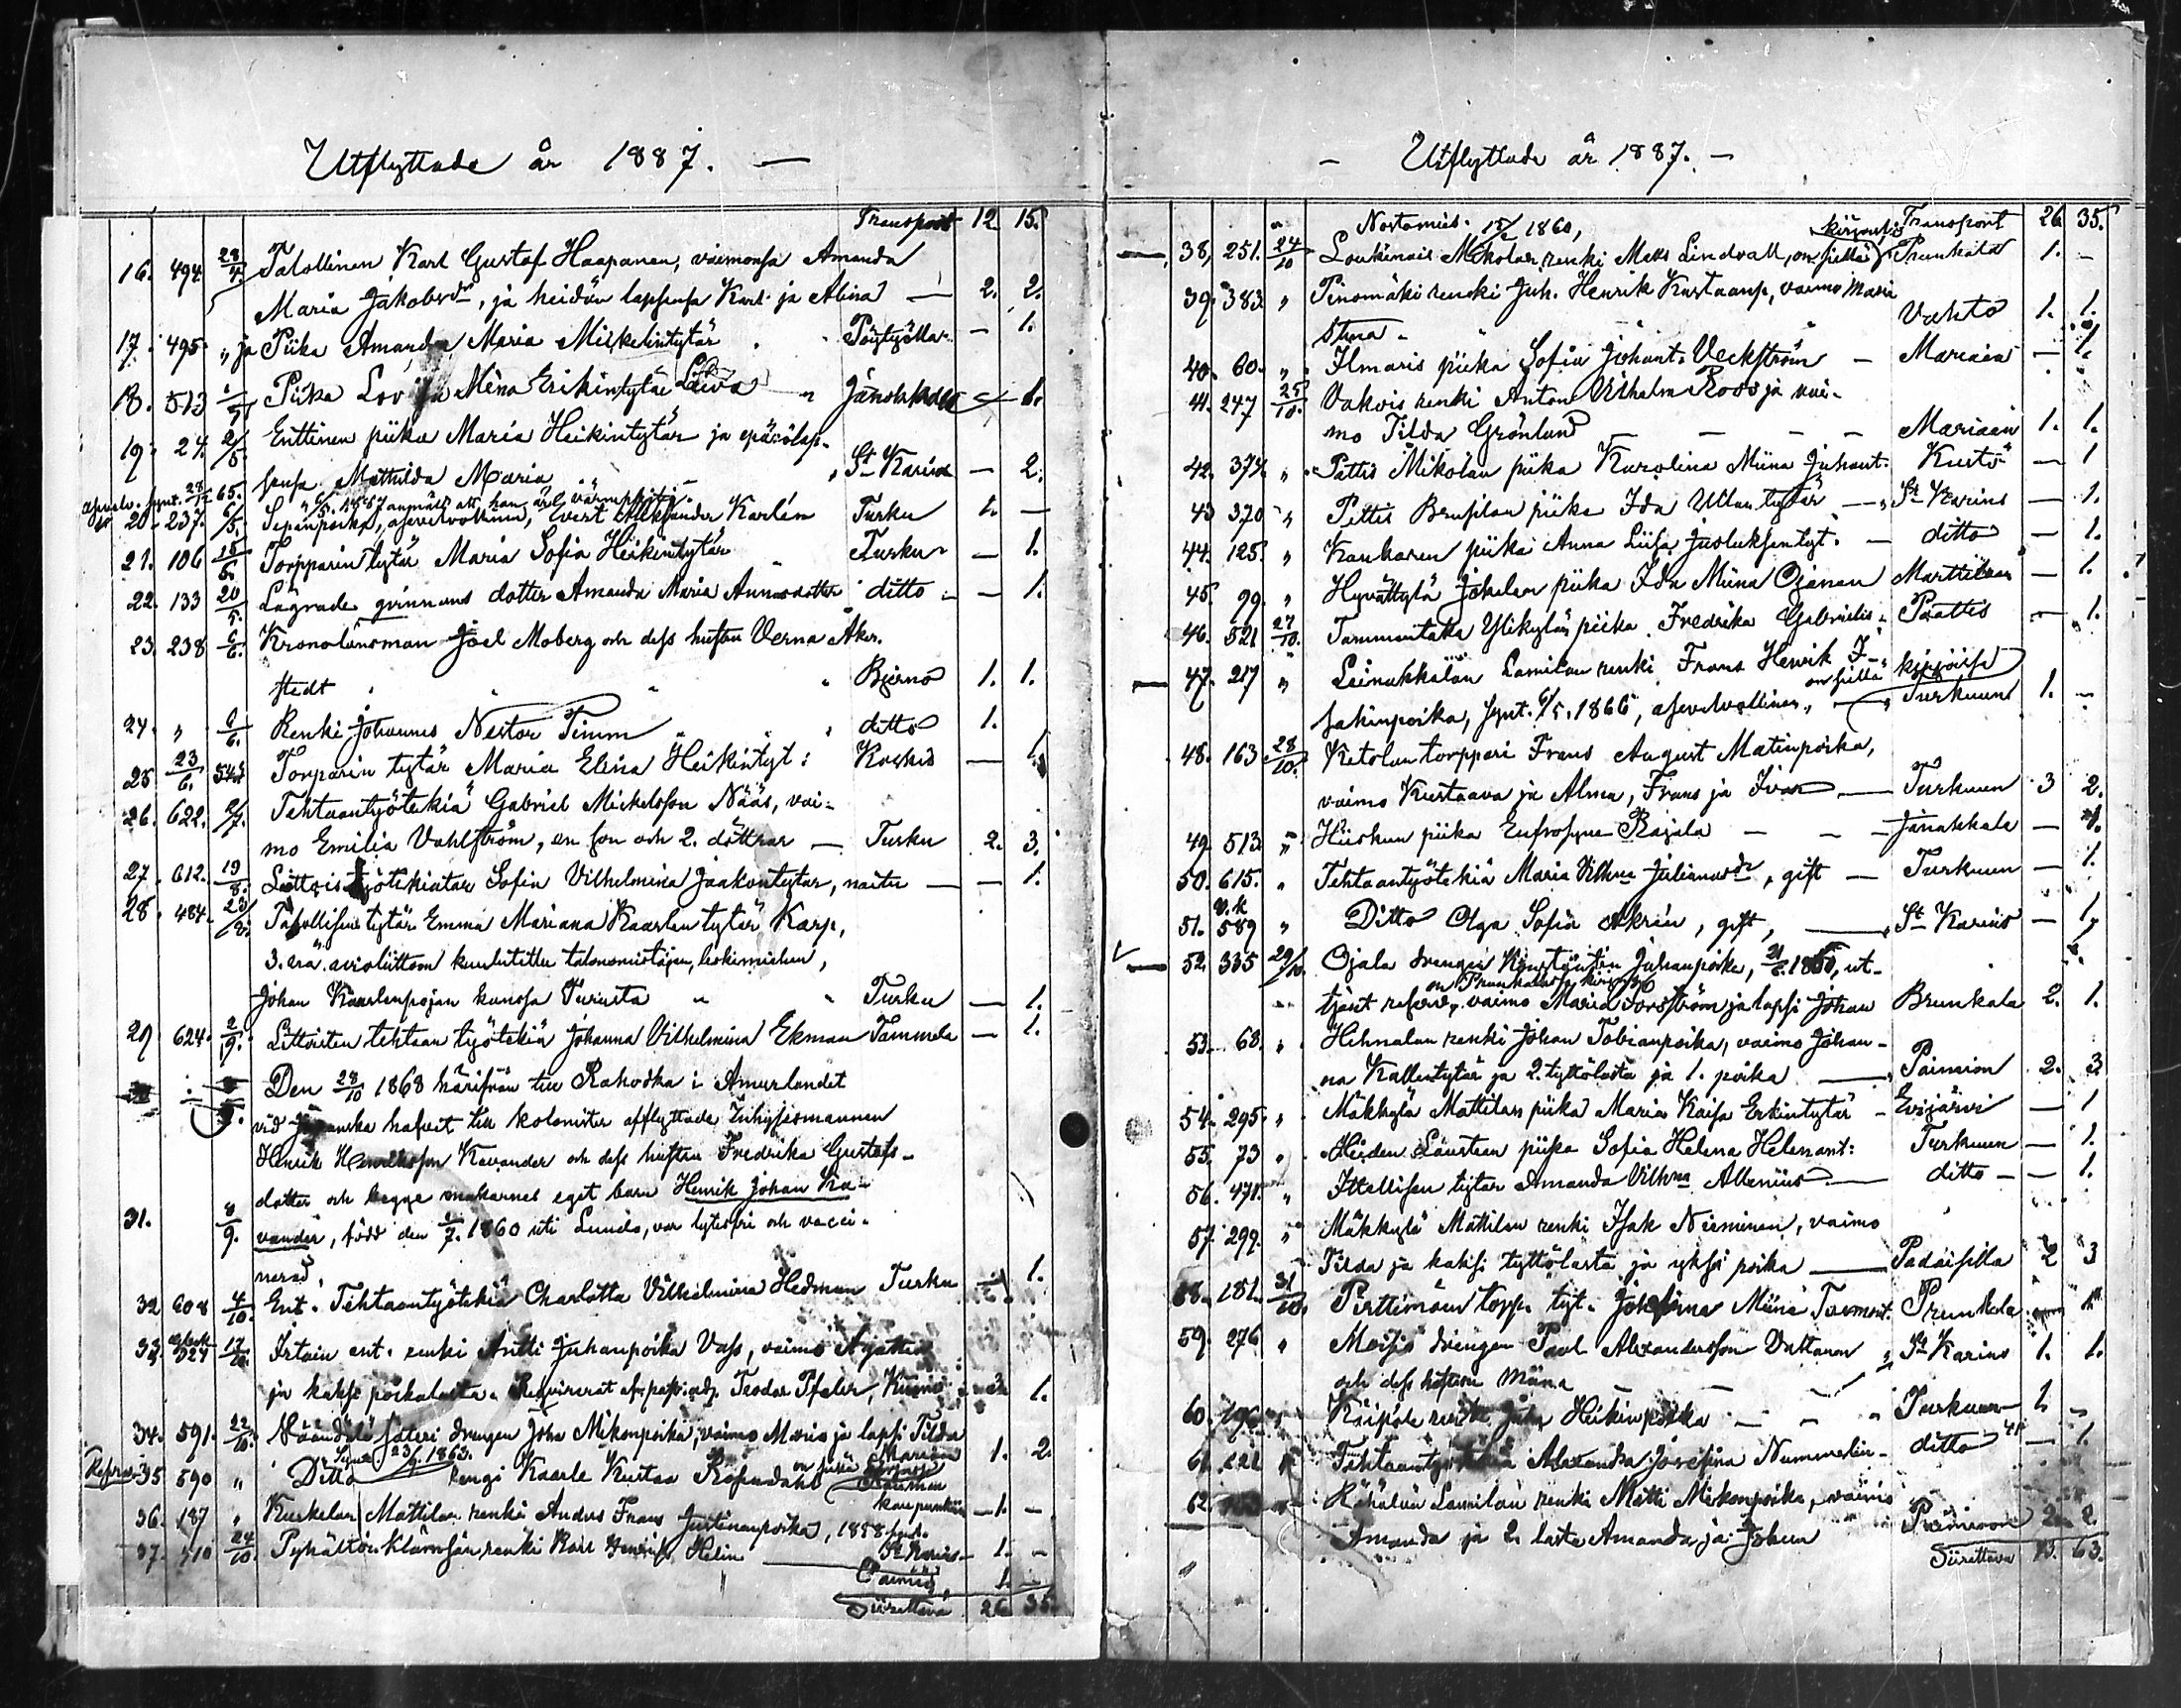 Utflyttade år 1887. —
Transport 12 15.
16. 494. 28/4. Talollinen Karl Gustaf Haapanen, vaimonsa Amanda
Maria Jakobsdr, ja heidän lapsensa Karl ja Alina — 2. 2.
17. 495. " ja Piika Amanda Maria Mickelintytär Pöytyälle — 1.
18. 513 1/5 Piika Lovisa Mina Erikintytär " Janakkala — 1.
19. 24. 2/5. Enttinen piika Maria Heikintytär ja epäröläp-
sensa Mathilda Maria " St Karins — 2.
20 237. 6/5. Sepänpoika, asevelvollinen, Evert Aleksander Karlén Turku 1. —
21. 106 15/5. Torpparin tytär Maria Sofia Heikintytär Turku — 1.
22. 133 20/5. Lagrade qvinnans dotter Amanda Maria Annasdotter ditto — 1.
23. 238 6/6. Kronolänsman Joel Moberg och dess hustru Verna Åker-
stedt " " Bjerno 1. 1.
24. " 6/6. Renki Johannes Nestor Timm " ditto 1.
25 23/6. Torparin tytär Maria Elina Heikintyt: Koskis — 1.
26. 622. 2/7. Tehtaantyötekiä Gabriel Mickelsson Nääs, vai-
mo Emilia Vahlström, en son och 2. döttrar — Turku 2. 3.
27. 612. 19/8. Littoisten työtekiätär Sofia Vilhelmina Jaakontytär, naitu — — 1.
28. 484. 23/8. Talollisen tytär Emma Mariana Kaarlen tytär Karp,
3. erä. avioliittoon kuulutettu talonomistajan, leskimiehen,
Johan Kaarlenpojan kanssa Turusta " " Turku — 1.
29 624. 2/9. Littoisten tehtaan työtekiä Johanna Vilhelmina Ekman Tammela — 1.
Den 28/10 1868 härifrån till Rahoska i Amurlandet
vid Japanska hafvet till kolonister afflyttade Inhysesmannen
Henrik Henriksson Kavander och dess hustru Fredrika Gustafs-
dotter och begge makarnes eget barn Henrik Johan Ka-
31. 8/9. vander, född den 2/7. 1860 uti Lundo, var lytesfri och vacci-
nerad. 1.
32 608 4/10. Ent. Tehtaantyötekiä Charlotta Vilhelmina Hedman Turku 1.
33. 527 17/10. Irtain ent. renki Antti Juhanpoika Vass, vaimo Agatha
ja kaksi poikalasta. Teodor Pfaler, 1.
34. 591. 22/10. säteri drengen Joha Mikonpoika, vaimo Maria ja lapsi Tilda
Mariaan 1. 2.
35 590 " Ditto Synt. 23/9. 1863. rengi Kaarle Kustaa Rosendahl Rauman
kaupunkiin 1. —
36. 187 " Kurkelan Mattilan renki Andrs Frans Justinanpoika, 1858 synt.
St Karins 1. —
37. 24/10. Pyhältön renki Karl Henrikss. Helin
Paimio 1. —
Siirettävä 26. 35.
— Utflyttade år 1887. —
Nostomies. 15/2 1860, Transport 26 35.
38, 251. 24/10 Loukinais Mikolan renki Mats Lindvall, on sillä kirjansa Prunkala 1. —
39. 383 " Pinomäki renki Juh. Henrik Kustaanp, vaimo Maria
Stina. Vahto 1. 1.
40. 60. " Ilmaris piika Sofia Johant. Veckström — Mariaan — 1.
41. 247 25/10. Vakois renki Anton Vilhelm Roos ja vai-
mo Tilda Grönlund — — — Mariaan 1. 1.
42. 374. " Pattis Mikolan piika Karolina Miina Juhant. Kustö — 1
43 370 " Pettis Brusilan piika Ida Ullantytär — " St Karins — 1.
44. 125. " Kauharen piika Anna Liisa Juoluksentyt. — ditto — 1.
45. 99. " Hyvättylä Jokelan piika Ida Miina Ojanen Marttilaan — 1.
46. 521 27/10. Tammentaka Ylikylän piika Fredrika Gabrielis. Paattis — 1.
47. 217 " Leinakkalan Lamilan renki Frans Henrik I- on sillä kirjansa
sakinpoika, synt. 6/5. 1866, asevelvollinen, — Turkuun 1. —
48. 163 28/10. Ketolan torppari Frans August Matinpoika,
vaimo Kustaava ja Alma, Frans ja Ivar — Turkuun 3 2.
49. 513. " Hiiskun piika Eufrosyne Rajala — — Janakkala — 1.
50. 615. " Tehtaantyötekiä Maria Vilhna Julianasdr, gift — Turkuun — 1.
51. v.k 589 " Ditto Olga Sofia Akrén, gift, — St Karins — 1.
52. 335 29/10. Ojala drengin Konstantin Juhanpoika, 1860, ut-
tjent reserv., vaimo Maria Forsström ja lapsi Johan Brunkala 2. 1.
53. 68. " Hihnalan renki Johan Tobianpoika, vaimo Johan-
na Kallentytär ja 2. tyttölasta ja 1. poika — Paimion 2. 3
54. 295. " Mäkkylä Mattilan piika Maria Kaisa Erkintytär — Evijärvi — 1
55. 73 " Heiden Läustean piika Sofia Helena Helenant: Turkuun — 1.
56. 471. " Itsellisen tytär Amanda Vilhna Allenius — ditto — 1.
57. 299. " Mäkkylä Mattilan renki Isak Nieminen, vaimo
Tilda ja kaksi tyttölasta ja yksi poika — Padaisilla 2 3
58. 181. 31/10. Perttimäen torpp. tyt. Josefina Miina Tuomont. Prunkala — 1.
59. 276 " Moisio drengen Paul Alexandersson Vattanen St Karins 1. 1.
och dess hustru Miina
60. Käipole renki Juha Heikinpoika — — Turkuun 1. —
61. Tehtaantyötekiä Alexandra Josefina Nummelin — ditto — 1.
62. Lamilan renki Matti Mikonpoika, vaimo
Amanda ja 2. lasta Amanda ja Johan Paimioon 2. 2.
Siirettävä 63.